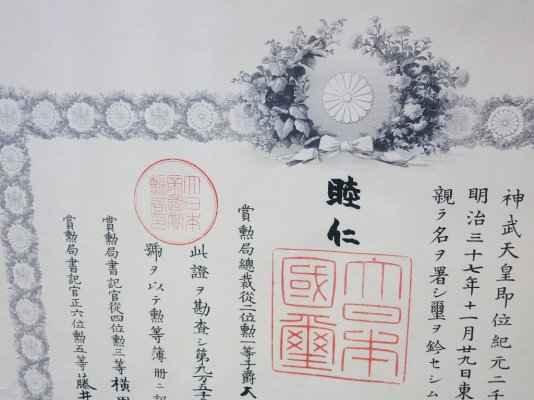 神武天皇即位紀元二千
明治三十七年十一月廿九日東
親ラ名ヲ署シ璽ヲ鈐セシム
睦仁
大日本
國璽
賞勲局總裁從二位勲一等子爵大
此證ヲ勘査シ第九
號ヲ以テ勲等簿冊ニ記
賞勲局書記官從四位勲三等横田
賞勲局書記官正六位勲五等藤井
大日本